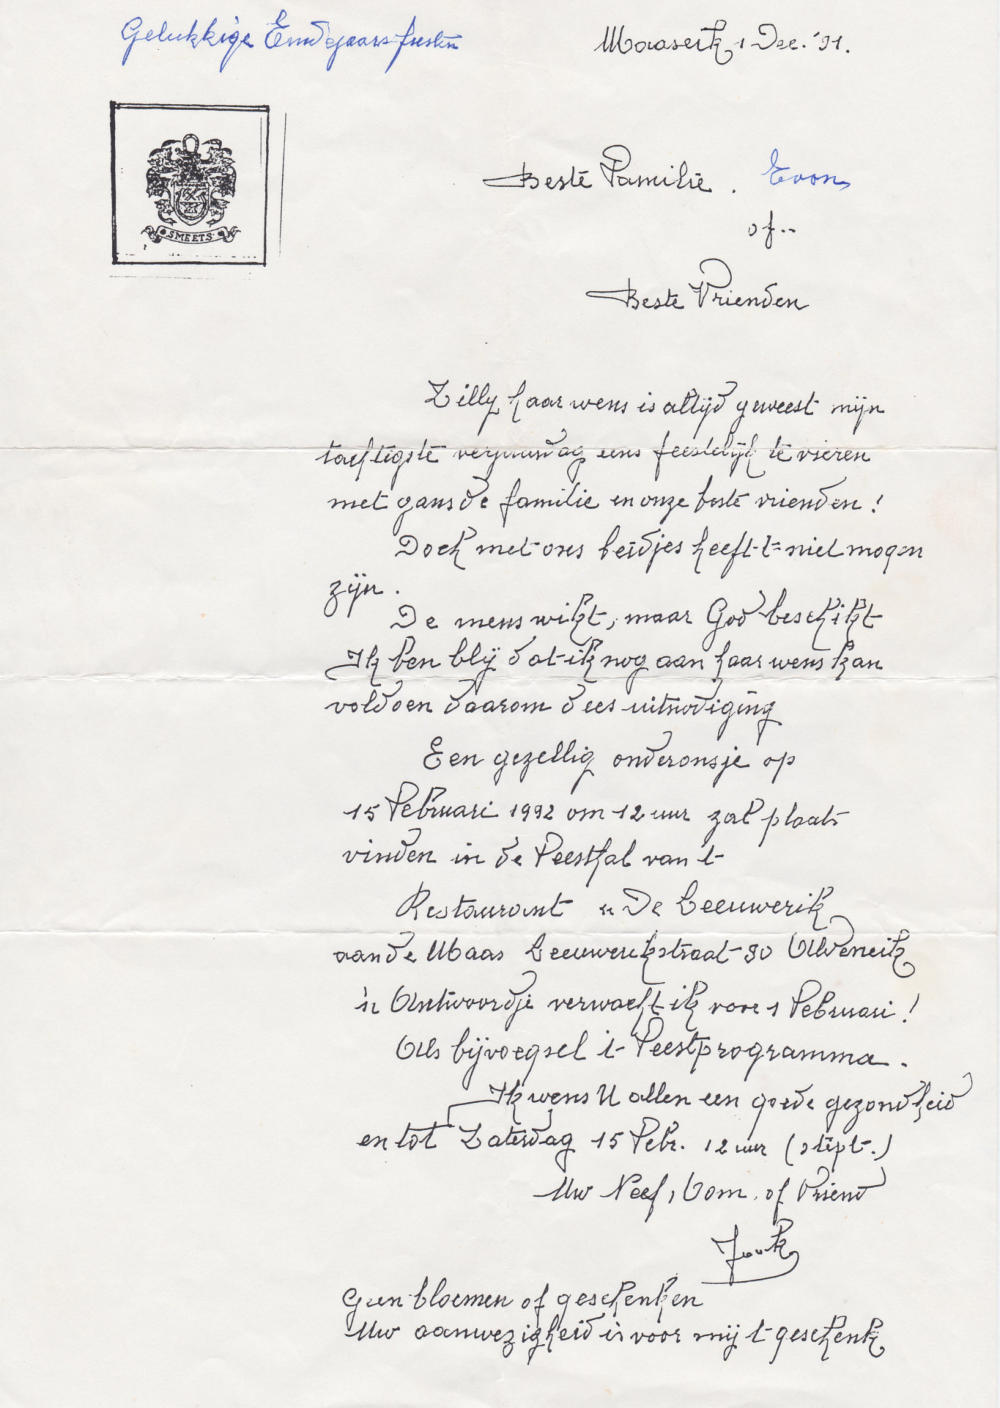 Gelukkige Eindejaarsfeesten
Maaseik 1 Dec. '91.
SMEETS
Beste Familie. Evons
of..
Beste Vrienden
Zilly haar wens is altijd geweest mijn
tachtigste verjaardag eens feestelijk te vieren
met gans de familie en onze beste vrienden!
Doch met ons beidjes heeft t niet mogen
zijn.
De mens wikt, maar God beschikt
Ik ben blij dat ik nog aan haar wens kan
voldoen daarom dees uitnodiging
Een gezellig onderonsje op
15 Februari 1992 om 12 uur zal plaats
vinden in de Feesthal van 't
Restaurant " De Leeuwerik
aan de Maas Leeuwerikstraat 90
'n Antwoordje verwacht ik voor 1 Februari!
Als bijvoegsel 't Feestprogramma.
Ik wens U allen een goede gezondheid
en tot Zaterdag 15 Febr. 12 uur (stipt.)
Uw Neef, Oom, of Vriend
Geen bloemen of geschenken
Uw aanwezigheid is voor mij 't geschenk